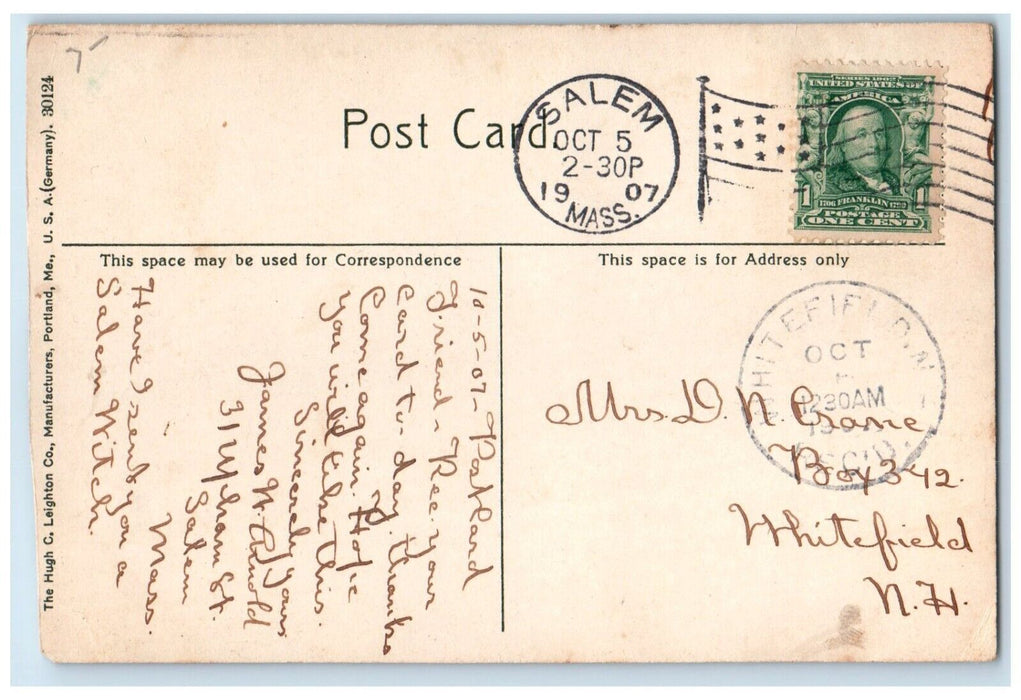 The Hugh C. Leighton Co., Manufacturers, Portland, Me., U. S. A. (Germany). 30124
Post Card.
SALEM
OCT 5
2-30P
19 07
MASS.
SERIES 1902
UNITED STATES OF
AMERICA
1706 FRANKLIN 1790
1 1
POSTAGE
ONE CENT
This space may be used for Correspondence
This space is for Address only
10-5-07- Portland
Friend - Rec. your
card to-day. Thanks
Come again. Hope
you will like this.
Sincerely Yours
James W. Arnold
31 Upham St.
Salem
Mass.
Have I sent you a
Salem Witch.
WHITEFIELD, N
OCT
1230AM
REC'D.
Mrs. D. N. Crane
Box 342.
Whitefield
N. H.